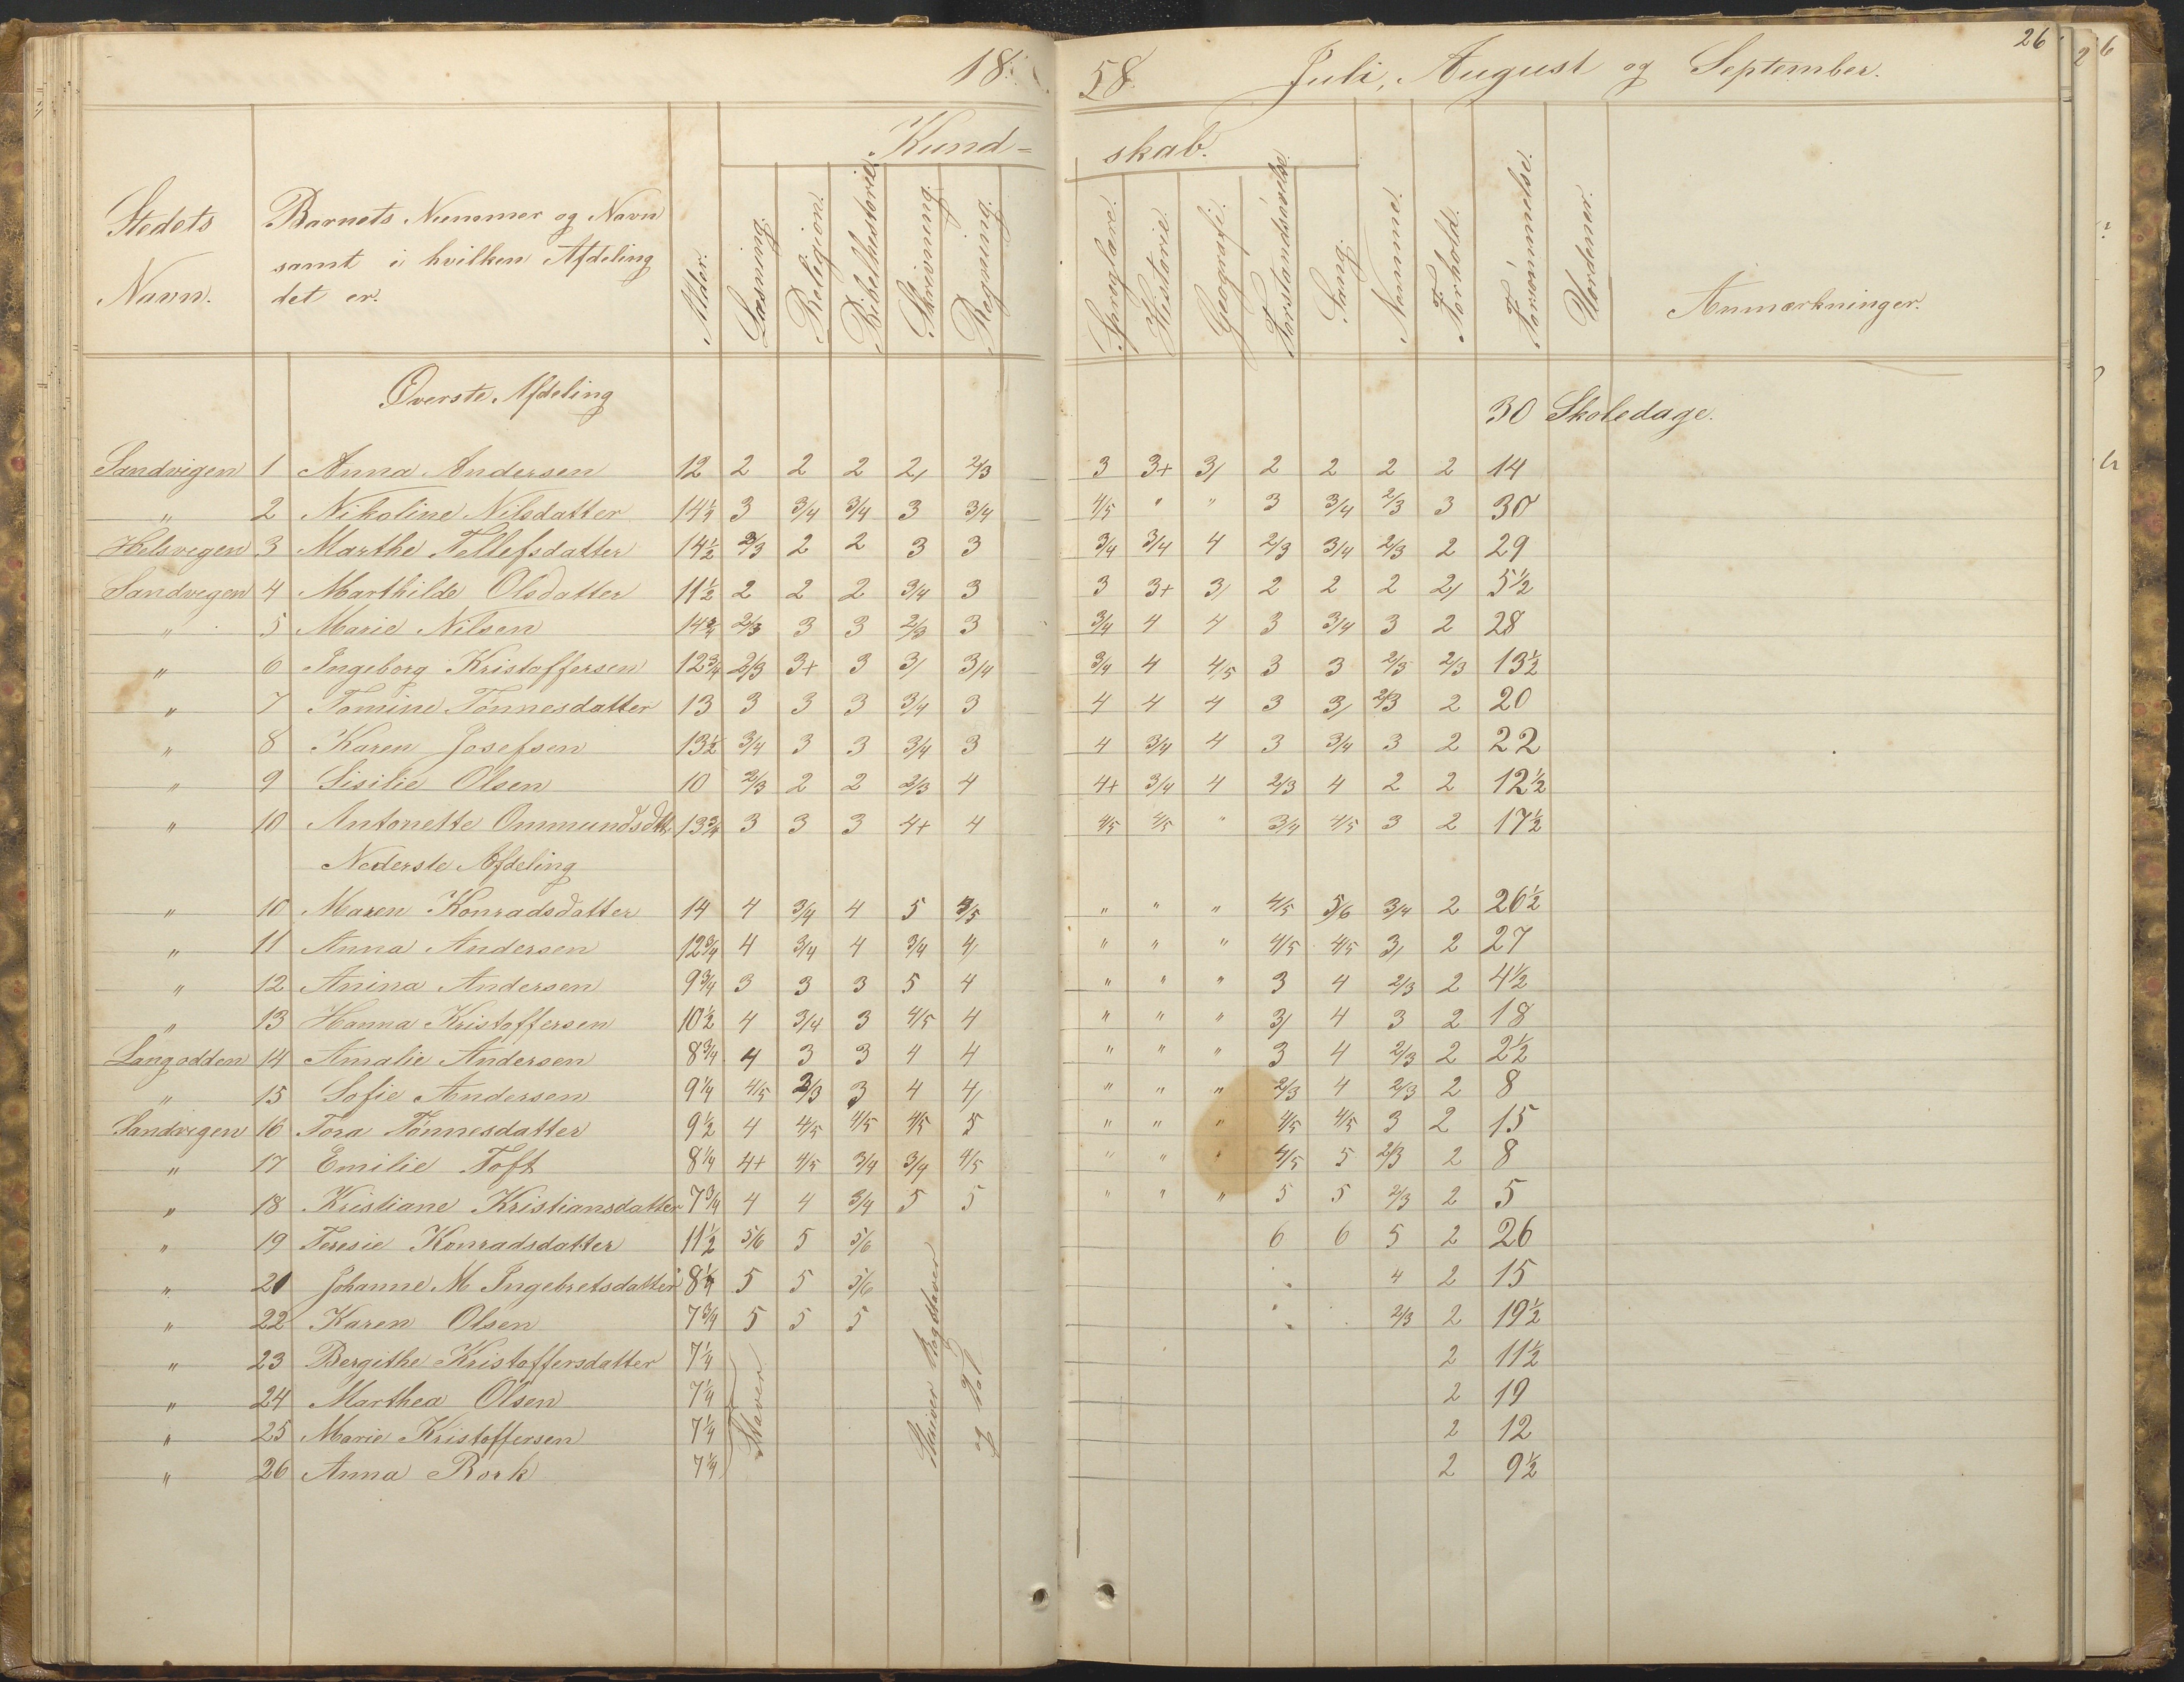 1858. Juli, August og September. 26
Kundskab.
Stedets Navn. Barnets Nummer og Navn samt i hvilken Afdeling det er. Alder. Læsning. Religion. Bibelhistorie. Skrivning. Regning. Sproglære. Historie. Geografi. Forstandsøvelse. Sang. Nemme. Forhold. Forsømmelse. Uordener. Anmærkninger.
Øverste Afdeling 30 Skoledage.
Sandvigen 1 Anna Andersen 12 2 2 2 2/ 2/3 3 3+ 3/ 2 2 2 2 14
" 2 Nikoline Nilsdatter 14½ 3 3/4 3/4 3 3/4 4/5 " " 3 3/4 2/3 3 30
Helsvigen 3 Marthe Tellefsdatter 14½ 2/3 2 2 3 3 3/4 3/4 4 2/3 3/4 2/3 2 29
Sandvigen 4 Marthilde Olsdatter 11½ 2 2 2 3/4 3 3 3+ 3/ 2 2 2 2/ 5½
" 5 Marie Nilsen 14¾ 2/3 3 3 2/3 3 3/4 4 4 3 3/4 3 2 28
" 6 Ingeborg Kristoffersen 12¾ 2/3 3+ 3 3/ 3/4 3/4 4 4/5 3 3 2/3 2/3 13½
" 7 Tomine Tønnesdatter 13 3 3 3 3/4 3 4 4 4 3 3/ 2/3 2 20
" 8 Karen Josefsen 13½ 3/4 3 3 3/4 3 4 3/4 4 3 3/4 3 2 22
" 9 Sisilie Olsen 10 2/3 2 2 2/3 4 4+ 3/4 4 2/3 4 2 2 12½
" 10 Antonette Ommundsdtt. 13¾ 3 3 3 4+ 4 4/5 4/5 " 3/4 4/5 3 2 17½
Nederste Afdeling
" 10 Maren Konradsdatter 14 4 3/4 4 5 4/5 " " " 4/5 5/6 3/4 2 26½
" 11 Anna Andersen 12¾ 4 3/4 4 3/4 4/ " " " 4/5 4/5 3/ 2 27
" 12 Anina Andersen 9¾ 3 3 3 5 4 " " " 3 4 2/3 2 4½
" 13 Hanna Kristoffersen 10½ 4 3/4 3 4/5 4 " " " 3/ 4 3 2 18
Langodden 14 Amalie Andersen 8¾ 4 3 3 4 4 " " " 3 4 2/3 2 2½
" 15 Sofie Andersen 9¼ 4/5 2/3 3 4 4/ " " " 2/3 4 2/3 2 8
Sandvigen 16 Tora Tønnesdatter 9½ 4 4/5 4/5 4/5 5 " " " 4/5 4/5 3 2 15
" 17 Emilie Toft 8¼ 4+ 4/5 3/4 3/4 4/5 " " " 4/5 5 2/3 2 8
" 18 Kristiane Kristiansdatter 7¾ 4 4 3/4 5 5 " " " 5 5 2/3 2 5
" 19 Teresie Konradsdatter 11½ 5/6 5 5/6 6 6 5 2 26
" 21 Johanne M Ingebretsdatter 8¼ 5 5 5/6 4 2 15
" 22 Karen Olsen 7¾ 5 5 5 2/3 2 19½
" 23 Bergithe Kristoffersdatter 7¼ 2 11½
" 24 Marthea Olsen 7¼ 2 19
" 25 Marie Kristoffersen 7¼ 2 12
" 26 Anna Bork 7¼ 2 9½
Staver
Skriver Bogstaver
og Tal